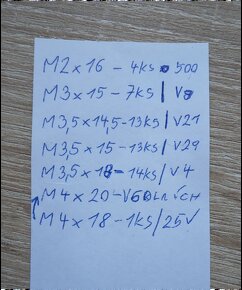 M2x16 - 4ks 500
M3x15 - 7ks / V8
M3,5x14,5 - 13ks / V21
M3,5x15 - 13ks / V29
M3,5x18 - 14ks / V4
M4x20 - VOOLNÍCH
M4x18 - 1ks / 25V